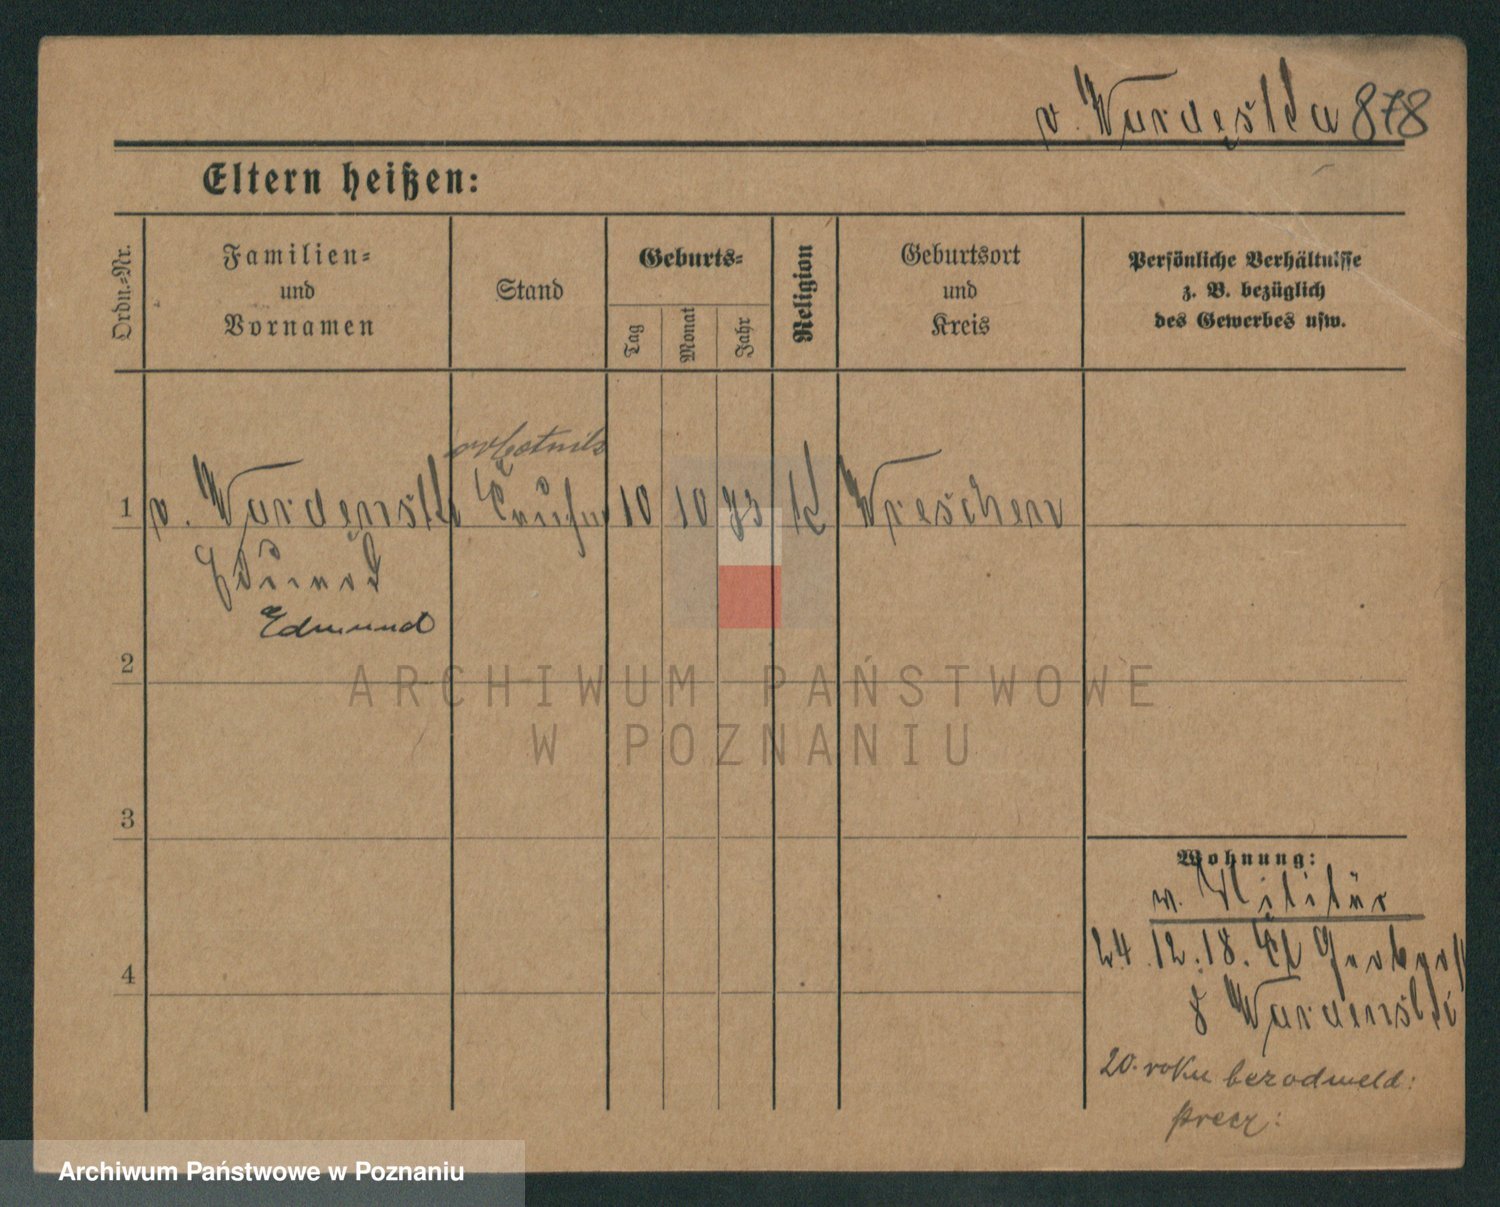 v. Wardęska 878
Eltern heißen:
Ordn.-Nr.
Familien-
und
Vornamen
Stand
Geburts-
Tag
Monat
Jahr
Religion
Geburtsort
und
Kreis
Persönliche Verhältnisse
z. B. bezüglich
des Gewerbes usw.
robotnik
1 v. Wardenski 10 10 93 k Wreschen
Edmund
Edmund
2
ARCHIWUM PAŃSTWOWE
W POZNANIU
3
Wohnung:
w. Militär
4 24.12.18.
b Wardenski
20. roku bez odmeld:
precz:
Archiwum Państwowe w Poznaniu